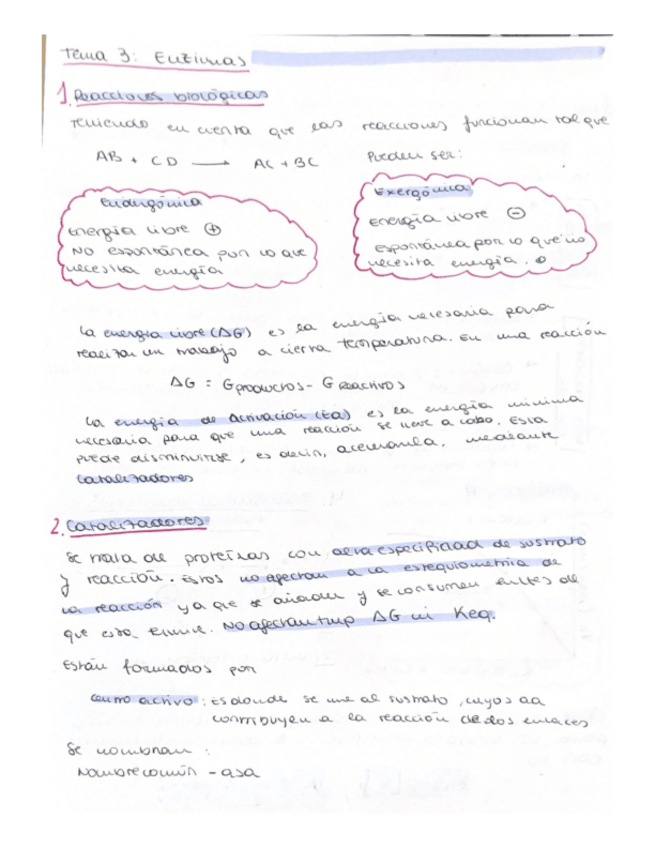 Tema 3: Enzimas
1. Reacciones biológicas
Teniendo en cuenta que las reacciones funcionan tal que
AB + CD → AC + BC Pueden ser:
Endergónica
energía libre +
No espontánea por lo que
necesita energía
Exergónica
energía libre −
espontánea por lo que no
necesita energía.
La energía libre (ΔG) es la energía necesaria para
realizar un trabajo a cierta temperatura. En una reacción
ΔG = Gproductos - Greactivos
La energía de Activación (Ea) es la energía mínima
necesaria para que una reacción se lleve a cabo. Esta
puede disminuirse, es decir, acelerarla, mediante
catalizadores
2. Catalizadores
Se trata de proteínas con alta especificidad de sustrato
y reacción. Estos no afectan a la estequiometría de
la reacción ya que se añaden y se consumen antes de
que esta termine. No afectan tmp ΔG ni Keq.
Están formados por
centro activo: Es donde se une al sustrato, cuyos aa
contribuyen a la reacción de los enlaces
Se nombran:
Nombre común - asa